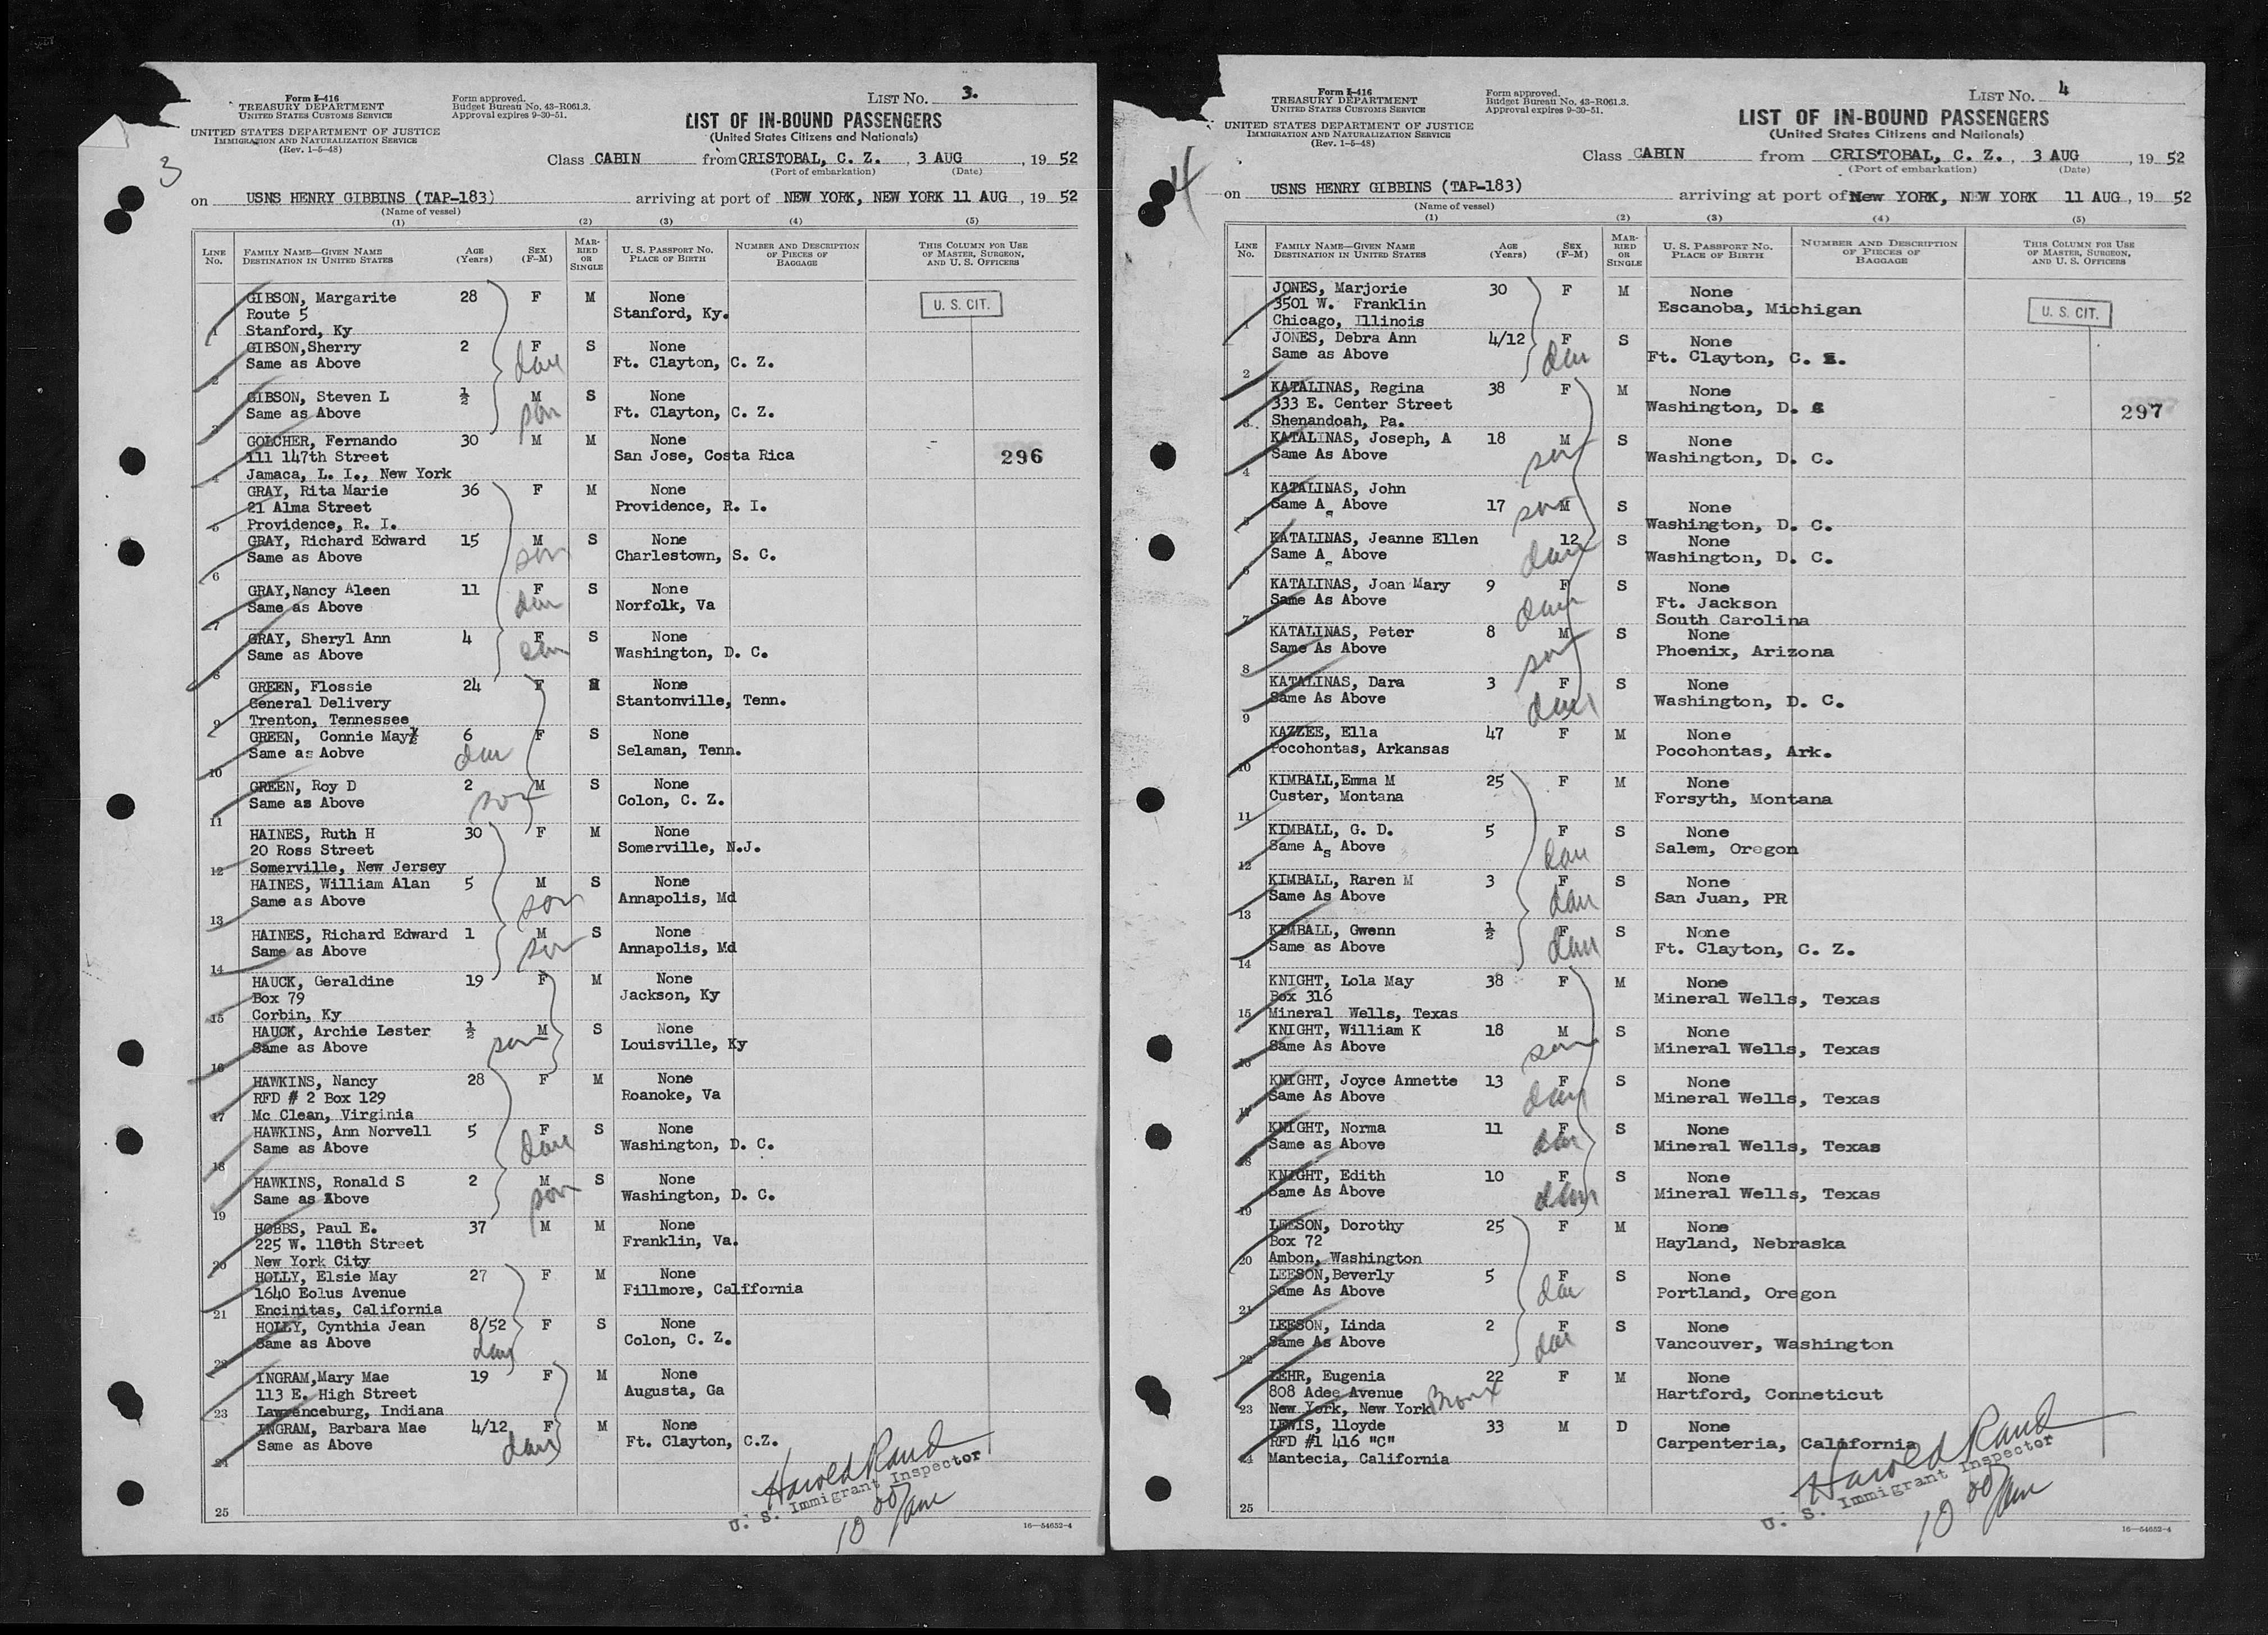 3
Form I-416
TREASURY DEPARTMENT
UNITED STATES CUSTOMS SERVICE
UNITED STATES DEPARTMENT OF JUSTICE
IMMIGRATION AND NATURALIZATION SERVICE
(Rev. 1-5-48)
Form approved.
Budget Bureau No. 43-R061.3.
Approval expires 9-30-51.
LIST NO. 3.
LIST OF IN-BOUND PASSENGERS
(United States Citizens and Nationals)
Class CABIN from CRISTOBAL, C. Z. , 3 AUG , 19 52
(Port of embarkation) (Date)
on USNS HENRY GIBBINS (TAP-183) arriving at port of NEW YORK, NEW YORK 11 AUG , 19 52
(Name of vessel)
(1) (2) (3) (4) (5)
LINE No. FAMILY NAME—GIVEN NAME DESTINATION IN UNITED STATES AGE (Years) SEX (F-M) MARRIED OR SINGLE U. S. PASSPORT NO. PLACE OF BIRTH NUMBER AND DESCRIPTION OF PIECES OF BAGGAGE THIS COLUMN FOR USE OF MASTER, SURGEON, AND U. S. OFFICERS
GIBSON, Margarite 28 F M None U. S. CIT.
Route 5 Stanford, Ky.
1 Stanford, Ky
GIBSON,Sherry 2 F S None
Same as Above dau Ft. Clayton, C. Z.
2
GIBSON, Steven L ½ M S None
Same as Above son Ft. Clayton, C. Z.
3
GOLCHER, Fernando 30 M M None
111 147th Street San Jose, Costa Rica 296
4 Jamaca, L. I., New York
GRAY, Rita Marie 36 F M None
21 Alma Street Providence, R. I.
5 Providence, R. I.
GRAY, Richard Edward 15 M S None
Same as Above son Charlestown, S. C.
6
GRAY,Nancy Aleen 11 F S None
Same as Above dau Norfolk, Va
7
GRAY, Sheryl Ann 4 F S None
Same as Above dau Washington, D. C.
8
GREEN, Flossie 24 F None
General Delivery Stantonville, Tenn.
9 Trenton, Tennessee
GREEN, Connie May 6 F S None
Same as Aobve dau Selaman, Tenn.
10
GREEN, Roy D 2 M S None
Same as Above son Colon, C. Z.
11
HAINES, Ruth H 30 F M None
20 Ross Street Somerville, N.J.
12 Somerville, New Jersey
HAINES, William Alan 5 M S None
Same as Above son Annapolis, Md
13
HAINES, Richard Edward 1 M S None
Same as Above son Annapolis, Md
14
HAUCK, Geraldine 19 F M None
Box 79 Jackson, Ky
15 Corbin, Ky
HAUCK, Archie Lester ½ son M S None
Same as Above Louisville, Ky
16
HAWKINS, Nancy 28 F M None
RFD # 2 Box 129 Roanoke, Va
17 Mc Clean, Virginia
HAWKINS, Ann Norvell 5 F S None
Same as Above dau Washington, D. C.
18
HAWKINS, Ronald S 2 M S None
Same as Above son Washington, D. C.
19
HOBBS, Paul E. 37 M M None
225 W. 110th Street Franklin, Va.
20 New York City
HOLLY, Elsie May 27 F M None
1640 Eolus Avenue Fillmore, California
21 Encinitas, California
HOLLY, Cynthia Jean 8/52 F S None
Same as Above dau Colon, C. Z.
22
INGRAM,Mary Mae 19 F M None
113 E. High Street Augusta, Ga
23 Lawrenceburg, Indiana
INGRAM, Barbara Mae 4/12 F M None
Same as Above dau Ft. Clayton, C.Z.
24
Harold Rand
U. S. Immigrant Inspector
25
10 00/am
16—54652-4
4
Form I-416
TREASURY DEPARTMENT
UNITED STATES CUSTOMS SERVICE
UNITED STATES DEPARTMENT OF JUSTICE
IMMIGRATION AND NATURALIZATION SERVICE
(Rev. 1-5-48)
Form approved.
Budget Bureau No. 43-R061.3.
Approval expires 9-30-51.
LIST NO. 4
LIST OF IN-BOUND PASSENGERS
(United States Citizens and Nationals)
Class CABIN from CRISTOBAL, C. Z. , 3 AUG , 19 52
(Port of embarkation) (Date)
on USNS HENRY GIBBINS (TAP-183) arriving at port of New YORK, NEW YORK 11 AUG , 19 52
(Name of vessel)
(1) (2) (3) (4) (5)
LINE No. FAMILY NAME—GIVEN NAME DESTINATION IN UNITED STATES AGE (Years) SEX (F-M) MARRIED OR SINGLE U. S. PASSPORT NO. PLACE OF BIRTH NUMBER AND DESCRIPTION OF PIECES OF BAGGAGE THIS COLUMN FOR USE OF MASTER, SURGEON, AND U. S. OFFICERS
JONES, Marjorie 30 F M None
3501 W. Franklin Escanoba, Michigan U. S. CIT.
1 Chicago, Illinois
JONES, Debra Ann 4/12 F S None
Same as Above dau Ft. Clayton, C. Z.
2
KATALINAS, Regina 38 F M None
333 E. Center Street Washington, D. C 297
3 Shenandoah, Pa.
KATALINAS, Joseph, A 18 M S None
Same As Above son Washington, D. C.
4
KATALINAS, John
Same As Above 17 son M S None
5 Washington, D. C.
KATALINAS, Jeanne Ellen 12 S None
Same As Above dau Washington, D. C.
6
KATALINAS, Joan Mary 9 F S None
Same As Above dau Ft. Jackson
7 South Carolina
KATALINAS, Peter 8 M S None
Same As Above son Phoenix, Arizona
8
KATALINAS, Dara 3 F S None
Same As Above dau Washington, D. C.
9
KAZZEE, Ella 47 F M None
Pocohontas, Arkansas Pocohontas, Ark.
10
KIMBALL,Emma M 25 F M None
Custer, Montana Forsyth, Montana
11
KIMBALL, G. D. 5 F S None
Same As Above dau Salem, Oregon
12
KIMBALL, Raren M 3 F S None
Same As Above dau San Juan, PR
13
KIMBALL, Gwenn ½ F S None
Same as Above dau Ft. Clayton, C. Z.
14
KNIGHT, Lola May 38 F M None
Box 316 Mineral Wells, Texas
15 Mineral Wells, Texas
KNIGHT, William K 18 M S None
Same As Above son Mineral Wells, Texas
16
KNIGHT, Joyce Annette 13 F S None
Same As Above dau Mineral Wells, Texas
17
KNIGHT, Norma 11 F S None
Same as Above dau Mineral Wells, Texas
18
KNIGHT, Edith 10 F S None
Same As Above dau Mineral Wells, Texas
19
LEESON, Dorothy 25 F M None
Box 72 Hayland, Nebraska
20 Ambon, Washington
LEESON,Beverly 5 F S None
Same As Above dau Portland, Oregon
21
LEESON, Linda 2 F S None
Same As Above dau Vancouver, Washington
22
LEHR, Eugenia 22 F M None
808 Adee Avenue Hartford, Conneticut
23 New York, New York Bronx
LEWIS, lloyde 33 M D None
RFD #1 416 "C" Carpenteria, California
24 Mantecia, California
Harold Rand
U. S. Immigrant Inspector
25
10 00/am
16—54652-4